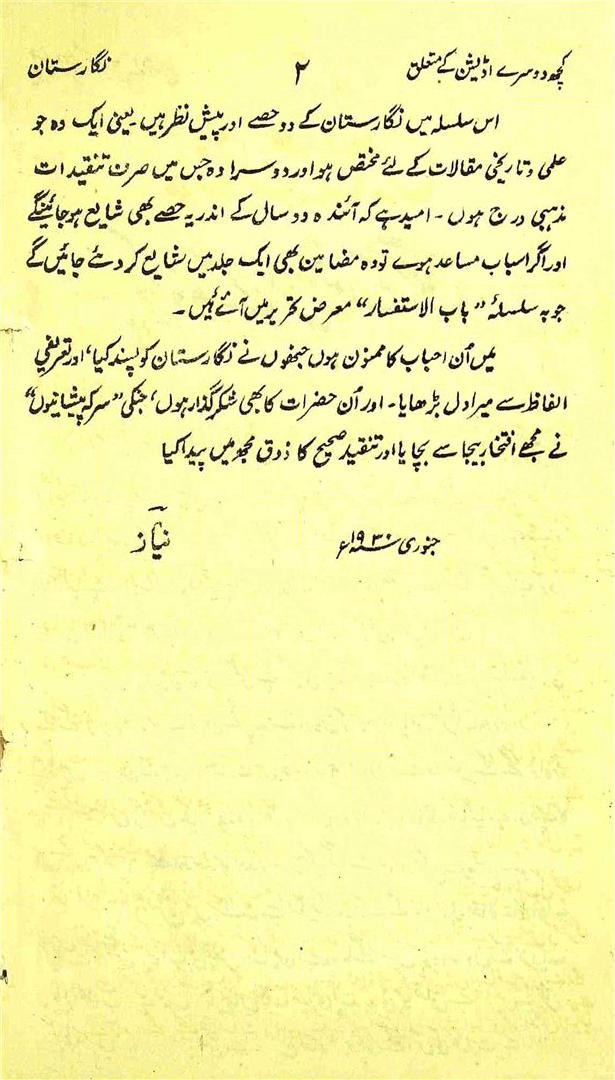 کچھ دوسرے اڈیشن کے متعلق ۲ نگارستان
اس سلسلہ میں نگارستان کے دو حصے اور پیش نظر ہیں یعنی ایک وہ جو
علمی و تاریخی مقالات کے لئے مختص ہو اور دوسرا وہ جس میں صرف تنقیدات
مذہبی درج ہوں ۔ امید ہے کہ آئندہ دو سال کے اندر یہ حصے بھی شایع ہو جائینگے
اور اگر اسباب مساعد ہوے تو وہ مضامین بھی ایک جلد میں شایع کر دئے جائیں گے
جو بہ سلسلۂ ”باب الاستفسار“ معرض تحریر میں آئے ہیں ۔
میں اُن احباب کا ممنون ہوں جنھوں نے نگارستان کو پسند کیا، اور تعریفی
الفاظ سے میرا دل بڑھایا ۔ اور اُن حضرات کا بھی شکر گذار ہوں، جنکی ”سرکہ پیشانیوں“
نے مجھے افتخار بیجا سے بچایا اور تنقید صحیح کا ذوق مجھ میں پیدا کیا
جنوری ۱۹۳۰ء نیاز